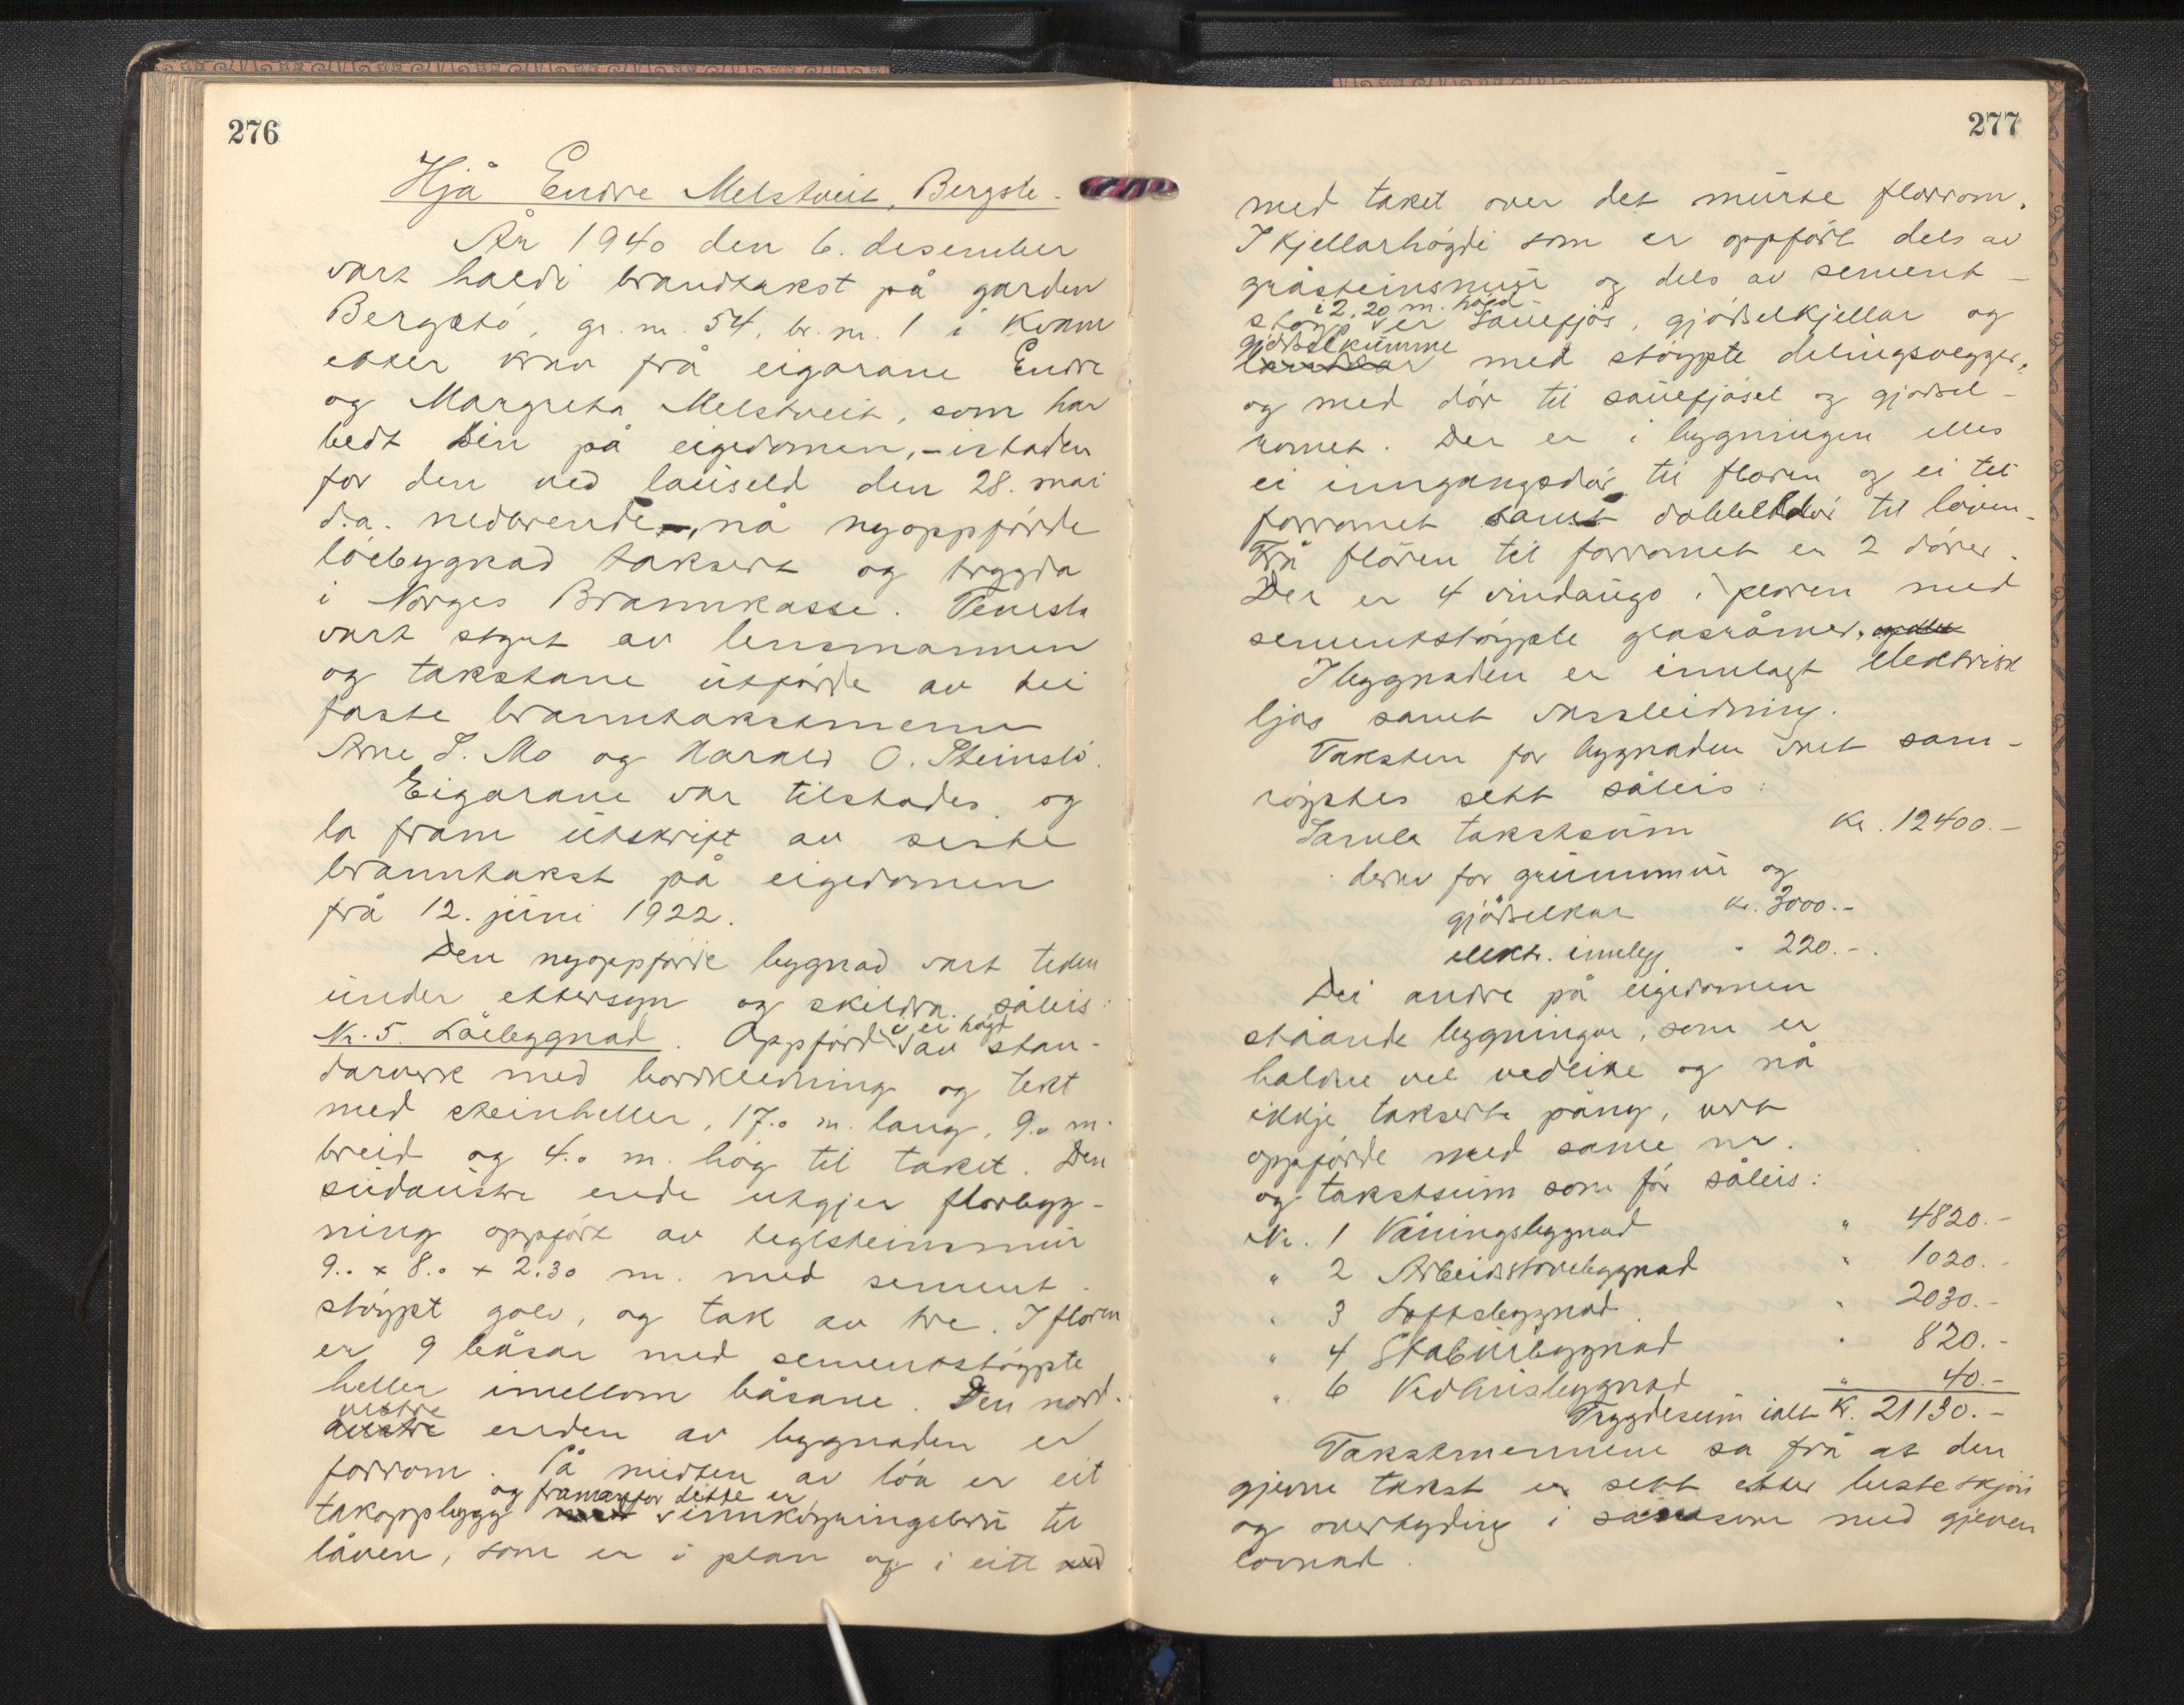 276
Hjå Endre Melstveit, Bergstø.
År 1940 den 6. desember
vart haldi brandtakst på garden
Bergstø, gr. nr. 54, br. nr. 1 i Kvam
etter krav frå eigarane Endre
og Margreta Melstveit, som har
bedt om på eigedomen, - istaden
for den ved lauseld den 28. mai
d.a. nedbrende, nå nyoppförde
löebygnad taksert og trygda
i Norges Brannkasse. Tenesta
vart styrt av lensmannen
og takstane utförde av dei
faste branntakstmenn
Arne S. Mo og Harald O. Steinstö.
Eigarane var tilstades og
la fram utskrift av siste
branntakst på eigedomen
frå 12. juni 1922.
Den nyoppförde bygnad vart teken
under ettersyn og skildra såleis:
Nr. 5. Löebygnad. Oppförd i ei högd av stan-
darverk med bordkledning og tekt
med steinheller, 17.0 m. lang, 9.0 m.
breid og 4.0 m. hög til taket. Den
südaustre ende utgjer florbygg-
ning oppfört av teglsteinsmur
9.0 x 8.0 x 2.30 m. med sement
stöypt golv, og tak av tre. I floren
er 9 båsar med sementstöypte
heller imellom båsane. Den nord-
vestre
austre enden av bygnaden er
forrom. På midten av löa er eit
og framanfor dette er
takoppbygg med innköyringsbru til
låven, som er i plan og i eitt med
277
med taket over det murte florrom.
I kjellarhögdi som er oppfört dels av
gråsteinsmur og dels av sement-
i 2,20 m. högd
stöyp er sauefjös, gjödselkjellar og
gjödselkumme
med stöypte delingsvegger,
og med dör til sauefjöset og gjödsel-
romet. Der er i bygningen elles
ei inngangsdör til floren og ei til
forromet samt dobbeltdör til löven.
Frå flören til forromet er 2 dörer.
Der er 4 vindaugo i floren med
sementstöypte glasråmer, og dei
I bygnaden er innlagt elektrisk
ljos samt vassleidning.
Taksten for bygnaden vart sam-
röystes sett såleis:
Samla takstsum Kr. 12400.-
derav for grunnmur og
gjödselkar Kr. 3000.-
elektr. innlegg " 220.-
Dei andre på eigedomen
ståande bygningar, som er
haldne vel vedlike og nå
ikkje takserte påny, vert
oppförde med same nr.
og takstsum som för såleis:
Nr. 1 Våningsbygnad " 4820.-
" 2 Arbeidstovebygnad " 1020.-
" 3 Loftsbygnad " 2030.-
" 4 Stabursbygnad " 820.-
" 6 Vedhusbygnad " 40.-
Trygdesum ialt Kr. 21130.-
Takstmennene sa frå at den
gjevne takst er sett etter beste skjön
og overtyding i samsvar med gjeven
lovnad.